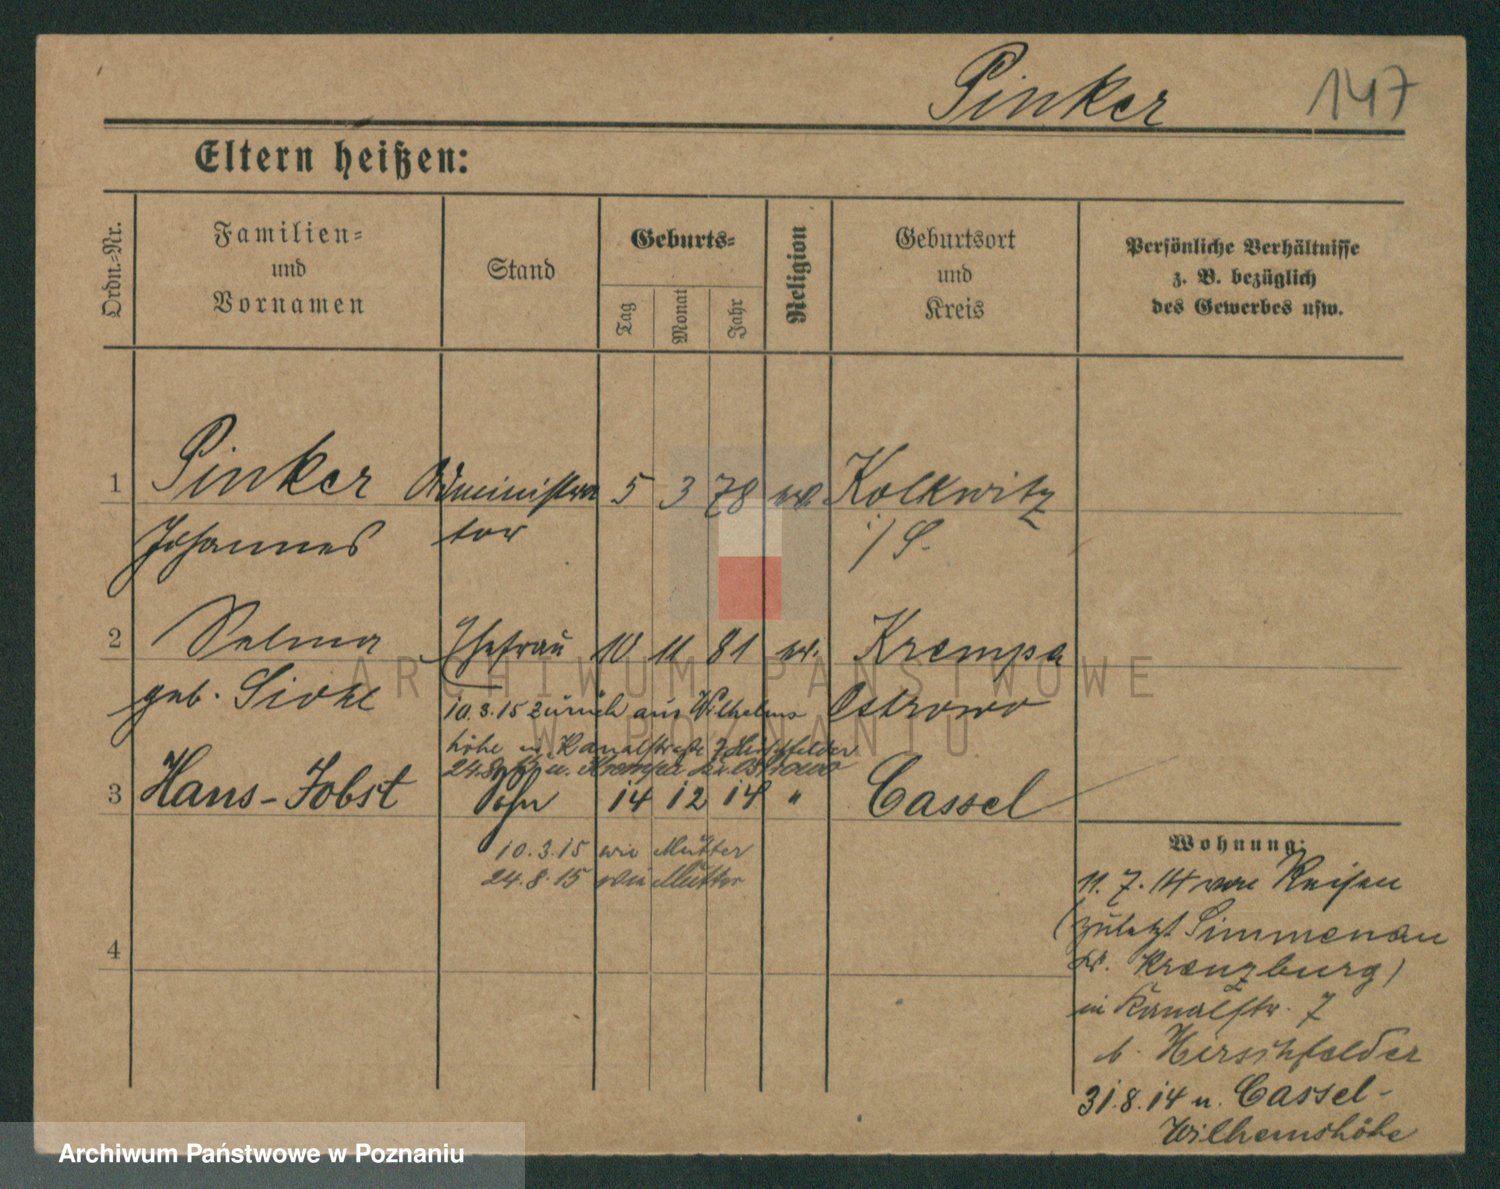 Pinker 147
Eltern heißen:
Ordn.-Nr.
Familien=
und
Vornamen
Stand
Geburts=
Tag
Monat
Jahr
Religion
Geburtsort
und
Kreis
Persönliche Verhältnisse
z. B. bezüglich
des Gewerbes usw.
1 Pinker Administra 5 3 78 Kolkwitz
Johannes tor
2 Selma Ehefrau 10 11 81 ev. Krempa
geb. Ostrowo
10.3.15 zurück aus Wilhelms
höhe n. Kanalstraße 7 Hirschfelder
24.8.15 n. Krempa Kr. Ostrowo
3 Hans-Jobst Sohn 14 12 14 " Cassel
10.3.15 wie Mutter
24.8.15 wie Mutter
4
Wohnung:
11.7.14 von Reisen
(zuletzt Simmenau
Kr. Kreuzburg)
in Kanalstr. 7
b. Hirschfelder
31.8.14 n. Cassel-
Wilhelmshöhe
ARCHIWUM PAŃSTWOWE
W POZNANIU
Archiwum Państwowe w Poznaniu